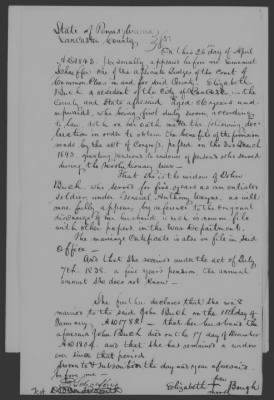 State of Pennsylvania
Lancaster County, } ss:
On this 26 day of April
A.D 1843. personally appears before me Emanuel
Schaeffer one of the associate Judges of the Court of
Common Pleas in and for said County. Elizabeth
Buch a resident of the City of Lancaster in the
County and State aforesaid, aged 80 years and
upwards, who being first duly sworn according
to law doth on her oath make the following dec-
laration in order to obtain the benefits of the provision
made by the act of Congress, passed on the 3rd March
1843. granting pensions to widows of persons who served
during the Revolutionary War:
That she is the widow of John
Buch, who served for five years as an enlisted
soldier under General Anthony Wayne, as will
more fully appear by reference to the original
discharge of her husband which is now on file
with other papers in the War Department.
The marriage Certificate is also on file in said
Office —
And that she received under the act of July
7th 1838. a five years pension, the annual
amount she does not know —
She further declares that she was
married to the said John Buch on the day of
January, AD 178 — that her husband the
aforesaid John Buch died on the 17 day of December
AD 1804. and that she has remained a widow
ever since that period
Sworn to & subscribed the day and year aforesaid
before me —
Elizabeth her Bough
mark